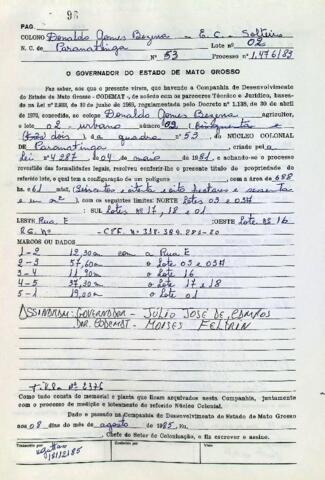 PAG. 96
COLONO Donaldo Gomes Bezerra - E.C. - Solteiro
N. C. de Paranatinga Lote nº 02
Nº 53 Processo nº 1.476/83
O GOVERNADOR DO ESTADO DE MATO GROSSO
Faz saber, aos que o presente virem, que havendo a Companhia de Desenvolvimento
do Estado de Mato Grosso - CODEMAT -, de acôrdo com os pareceres Técnico e Jurídico, basea-
dos na Lei nº 2.933, de 30 de junho de 1969, regulamentada pelo Decreto nº 1.138, de 30 de abril
de 1970, concedido ao colono Donaldo Gomes Bezerra agricultor,
o lote 02 urbano número 02
dois) a quadra nº 53 do NÚCLEO COLONIAL
DE Paranatinga criado pela
lei nº 4.287, de 04 de maio 1981, e achando-se o processo
revestido das formalidades legais, resolveu conferir-lhe o presente título de propriedade do
referido lote, o qual tem a configuração de um polígono com a área de 688
has. 61 e sessenta
e um m²), com os seguintes limites: NORTE lotes 03 e 03A
: SUL lotes 17, 18 e 01
LESTE Rua E :OESTE lote nº 16
R.G. Nº - CPF. nº 318.384.281-20
MARCOS OU DADOS
1-2 12,30m com a Rua E
2-3 57,60m o lote 03 e 03A
3-4 11,90m o lote 16
4-5 37,30m o lote 17 e 18
5-1 19,00m o lote 01
ASSINARAM: GOVERNADOR - JÚLIO JOSÉ DE CAMPOS
CODEMAT - MOISES FELTRIN
Titulo Nº 2376
Como tudo consta do memorial e planta que ficam arquivados nesta Companhia, juntamente
com o processo de medição e loteamento do referido Núcleo Colonial.
Dado e passado na Companhia de Desenvolvimento do Estado de Mato Grosso
aos 08 dias do mês de agosto de 1985. Eu,
, Chefe do Setor de Colonização, o fiz escrever e assino.